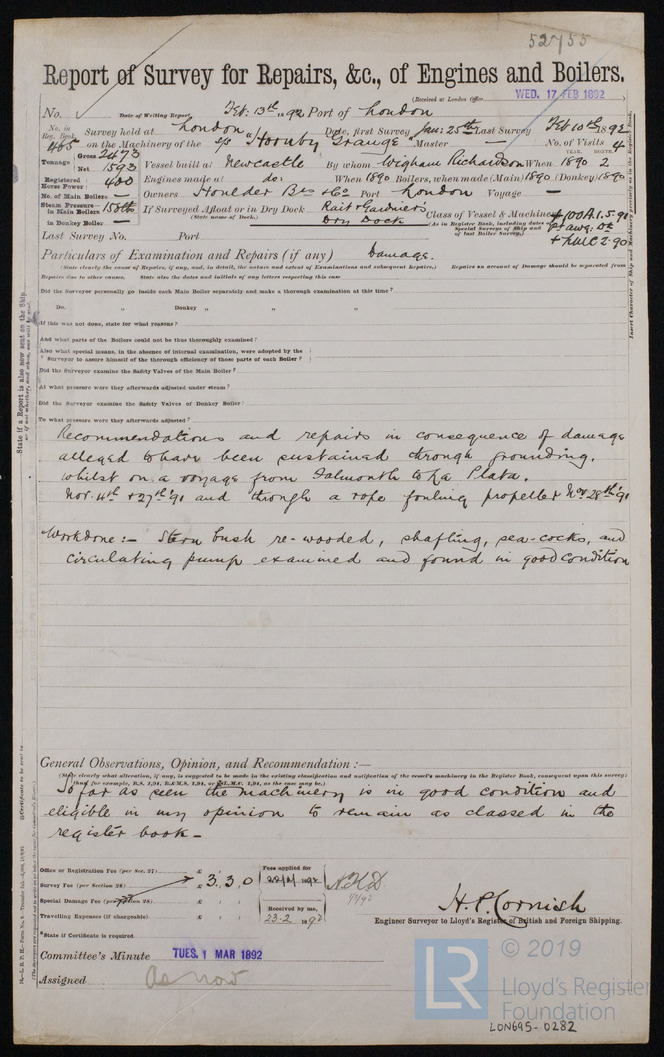 52755
Report of Survey for Repairs, &c., of Engines and Boilers.
(Received at London Office WED. 17 FEB 1892)
No. Date of Writing Report Feb. 13th 92 Port of London
No. in Reg. Book 465 Survey held at London Date, first Survey Jan: 25th Last Survey Feb 10th 1892
on the Machinery of the s/s "Hornby Grange" Master — No. of Visits 4
Tonnage Gross 2473 Net 1593 Vessel built at Newcastle By whom Wigham Richardson When 1890 2
Registered Horse Power 400 Engines made at do: When 1890 Boilers, when made (Main) 1890 (Donkey) 1890
No. of Main Boilers — Owners Houlder Bros & Co Port London Voyage —
Steam Pressure in Main Boilers 150 lbs If Surveyed Afloat or in Dry Dock Rait & Gardiners Dry Dock Class of Vessel & Machinery +100A.1.5.91
in Donkey Boiler — (State name of Dock.) (As in Register Book, including dates of Special Surveys of Ship and of last Boiler Survey.)
Last Survey No. Port + LMC 2.90
Particulars of Examination and Repairs (if any) Damage.
(State clearly the cause of Repairs, if any, and, in detail, the nature and extent of Examinations and subsequent Repairs.) Repairs on account of Damage should be separated from
Repairs due to other causes. State also the dates and initials of any letters respecting this case
Did the Surveyor personally go inside each Main Boiler separately and make a thorough examination at this time?
Do. „ Donkey „ „ „
If this was not done, state for what reasons?
And what parts of the Boilers could not be thus thoroughly examined?
Also what special means, in the absence of internal examination, were adopted by the
Surveyor to assure himself of the thorough efficiency of those parts of each Boiler?
Did the Surveyor examine the Safety Valves of the Main Boiler?
At what pressure were they afterwards adjusted under steam?
Did the Surveyor examine the Safety Valves of Donkey Boiler?
To what pressure were they afterwards adjusted?
Recommendations and repairs in consequence of damage
alleged to have been sustained through grounding,
whilst on a voyage from Falmouth to La Plata.
Nov. 4th & 27th '91 and through a rope fouling propeller Nov 28th '91
Workdone:— Stern bush re-wooded, shafting, sea-cocks, and
circulating pump examined and found in good condition
General Observations, Opinion, and Recommendation:—
(State clearly what alteration, if any, is suggested to be made in the existing classification and notification of the vessel's machinery in the Register Book, consequent upon this survey;
So far as seen the machinery is in good condition and
eligible in my opinion to remain as classed in the
register book —
Office or Registration Fee (per Sec. 27) £
Survey Fee (per Section 28) £ 3 . 3 . 0 Fees applied for 1892
Special Damage Fee (per Section 28) £
Travelling Expenses (if chargeable) £ Received by me, 23.2 1892
H. P. Cornish
Engineer Surveyor to Lloyd's Register of British and Foreign Shipping.
*State if Certificate is required
Committee's Minute TUES. 1 MAR 1892
Assigned As now
LR
© 2019
Lloyd's Register
Foundation
LON695-0282